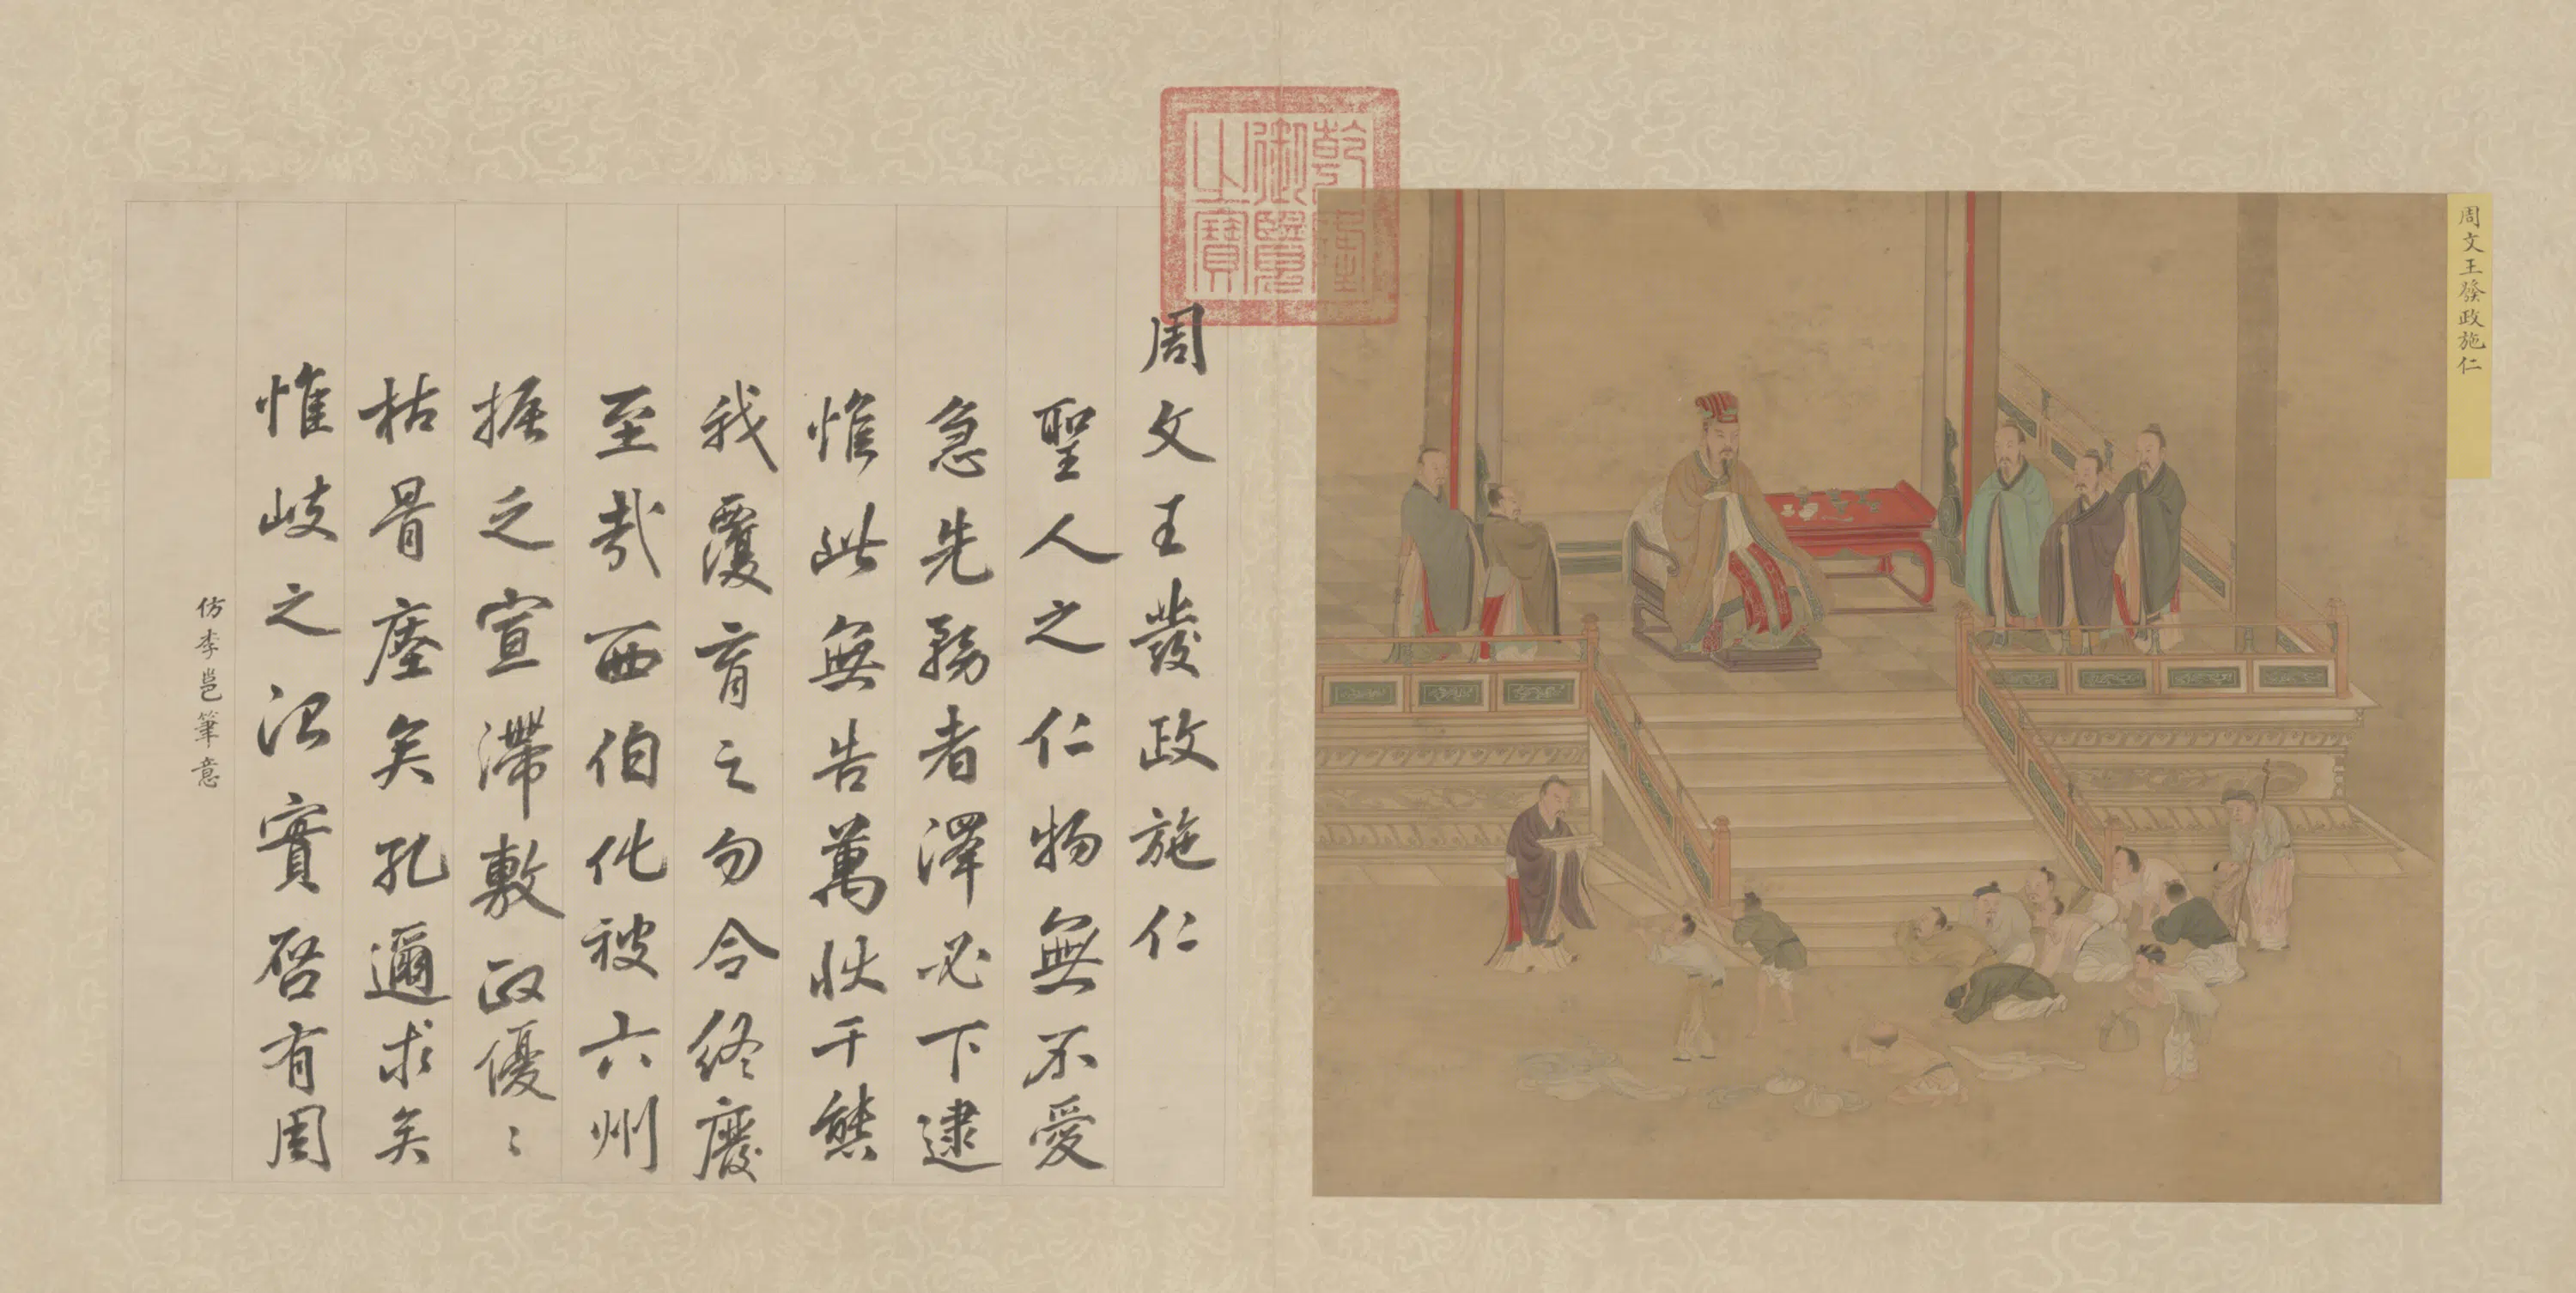 周文王發政施仁
乾隆
御覽
之寶
周文王發政施仁
聖人之仁物無不愛
急先務者澤必下逮
惟此無告萬狀千態
我覆育之勿令終廢
至哉西伯化被六州
振乏宣滯敷政優〻
枯骨瘞矣孔邇求矣
惟岐之治實啓有周
仿李邕筆意